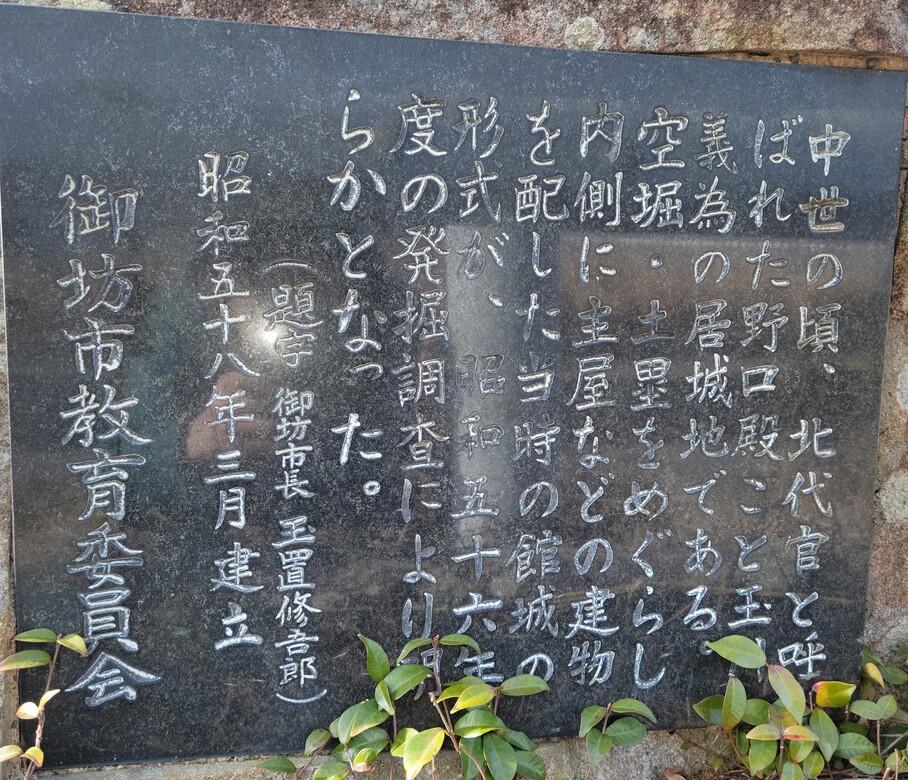 中世の頃、北代官と呼
ばれた野口殿こと玉
義為の居城地である。
空堀・土塁をめぐらし
内側に主屋などの建物
を配した当時の館城の
形式が、昭和五十六年
度の発掘調査により明
らかとなった。
（題字 御坊市長 玉置修吾郎）
昭和五十八年三月建立
御坊市教育委員会